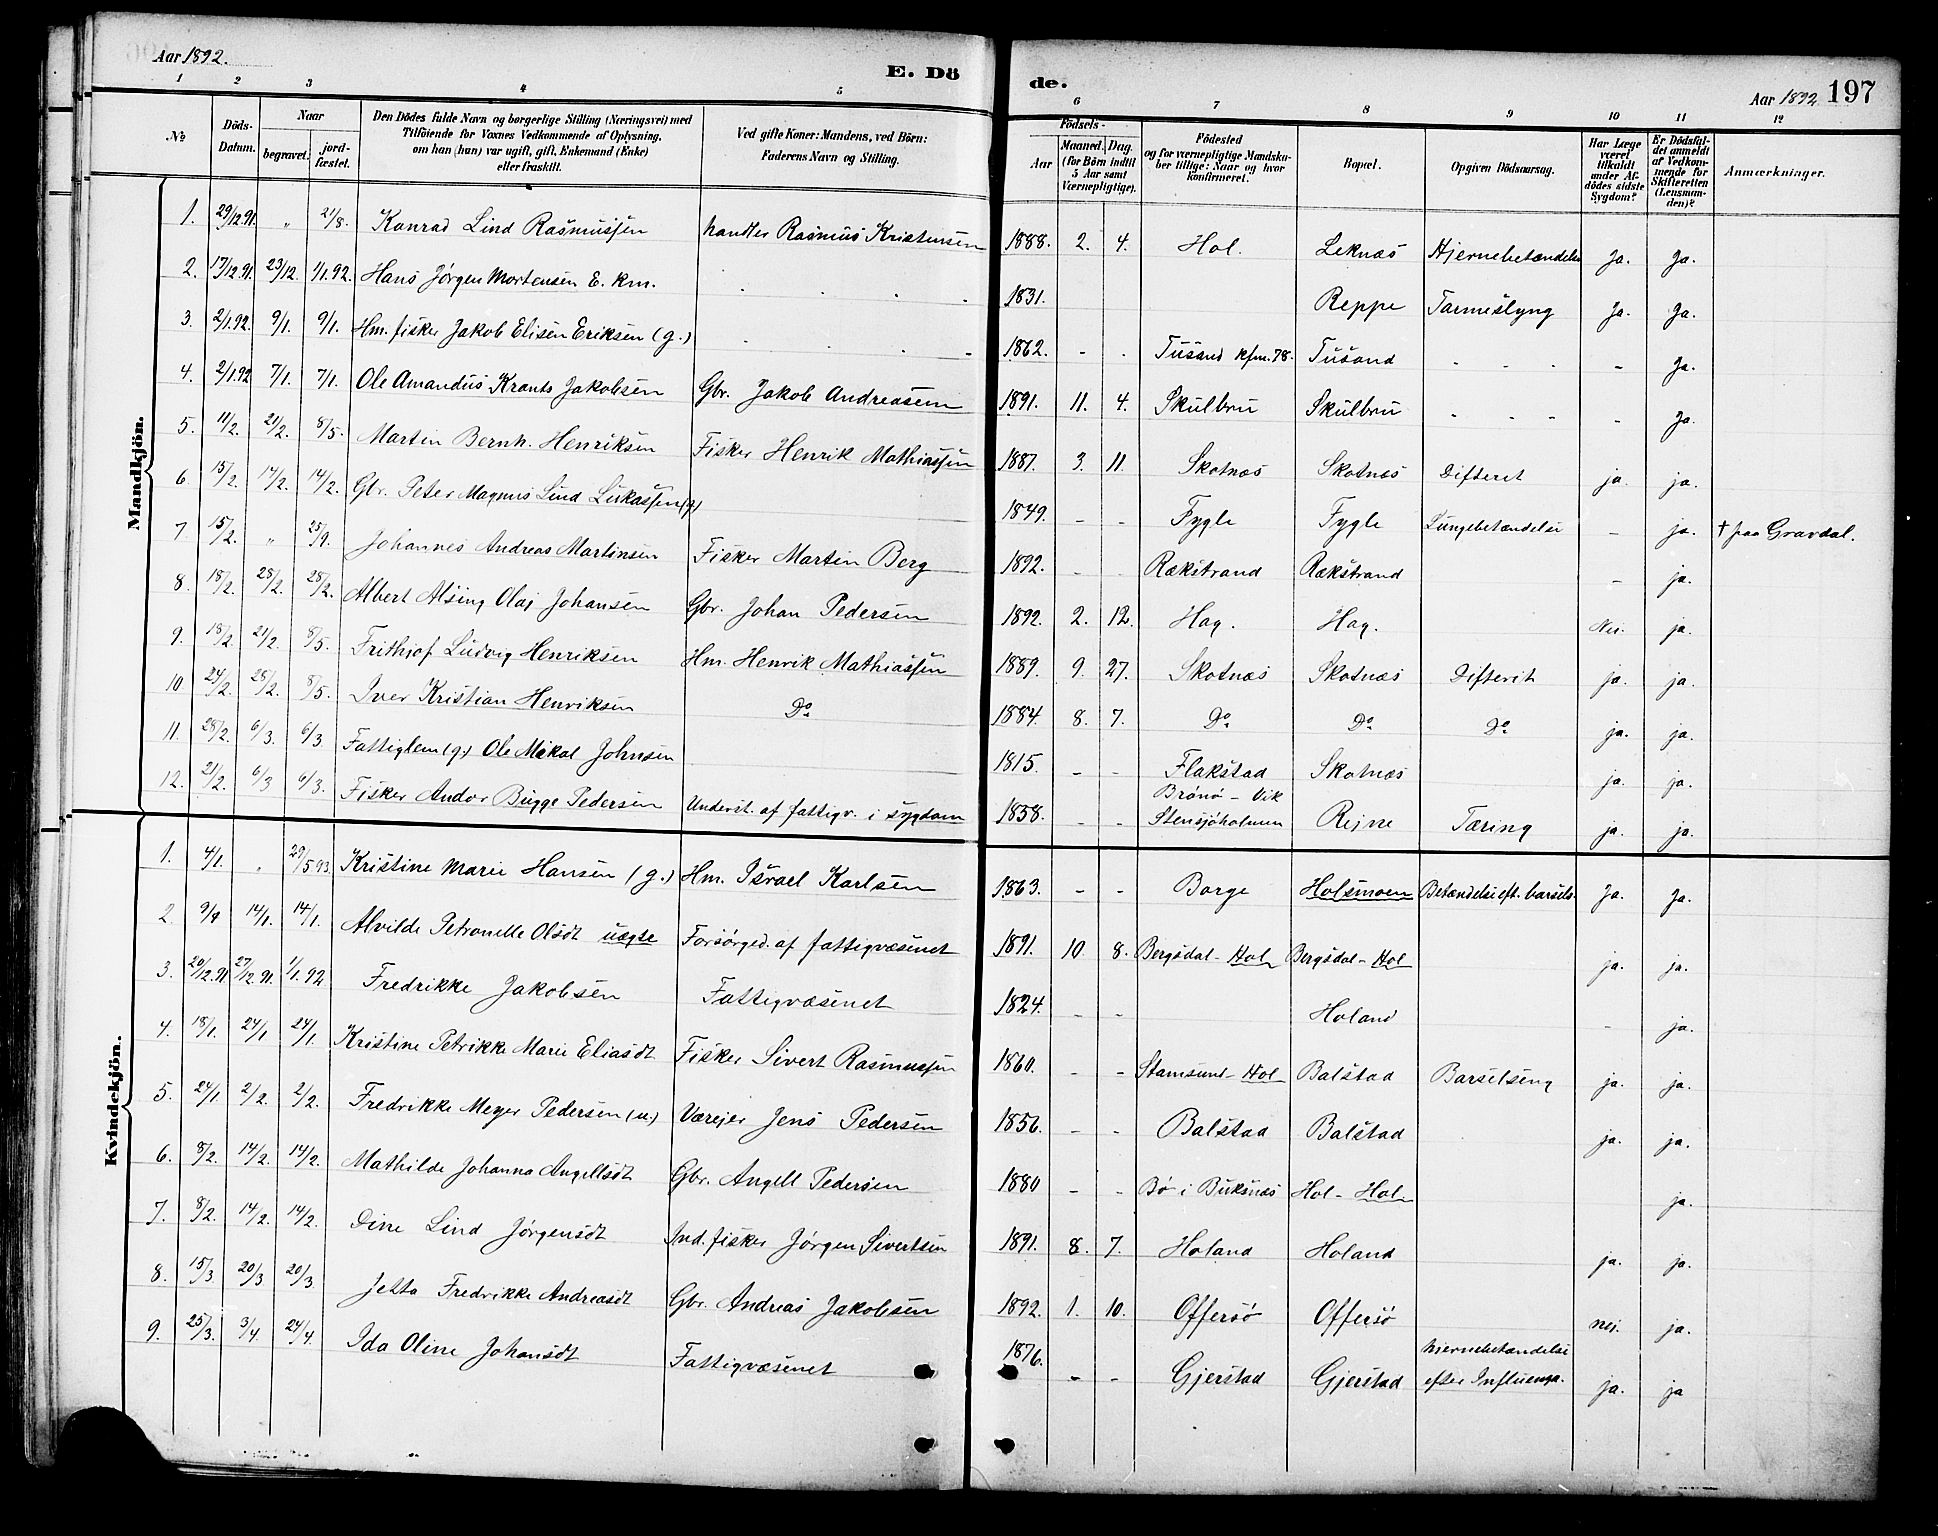 Aar 1892.
E. Dö
de.
Aar 1892
197
1 2 3 4 5 6 7 8 9 10 11 12
No
Döds-Datum.
Naar
begravet.
jord-fæstet.
Den Dödes fulde Navn og borgerlige Stilling (Næringsvei) med
Tilföiende for Voxnes Vedkommende af Oplysning,
om han (hun) var ugift, gift, Enkemand (Enke)
eller fraskilt.
Ved gifte Koner: Mandens, ved Börn:
Faderens Navn og Stilling.
Födsels-
Aar
Maaned. Dag.
(for Börn indtil
5 Aar samt
Værnepligtige).
Födested
og for værnepligtige Mandska-
ber tillige: Naar og hvor
konfirmeret.
Bopæl.
Opgiven Dödsaarsag.
Har Læge
været
tilkaldt
under Af-
dödes sidste
Sygdom?
Er Dödsfal-
det anmeldt
af Vedkom-
mende for
Skifteretten
(Lensman-
den)?
Anmærkninger.
Mandkjön.
1. 29/12.91. " 21/8. Konrad Lind Rasmussen handler Rasmus Kristensen 1888. 2. 4. Hol. Leknæs Hjernebetændelse Ja. Ja.
2. 17/12.91. 23/12. 1/1.92. Hans Jørgen Mortensen E. km. 1831. Reppe Tarmeslyng Ja. Ja.
3. 2/1.92. 9/1. 9/1. Hm. fisker Jakob Elisen Eriksen (g.) 1862. - - Tusand kfm. 78. Tusand - - - - Ja.
4. 2/1.92 7/1. 7/1. Ole Amandus Krants Jakobsen Gbr. Jakob Andreasen 1891. 11. 4. Skulbru Skulbru - - - - Ja.
5. 11/2. 21/2. 8/5. Martin Bernh. Henriksen Fisker Henrik Mathiassen 1887. 3. 11. Skotnæs Skotnæs Difterit ja. ja.
6 15/2. 14/2. 14/2. Gbr. Peter Magnus Lind Lukassen (g) 1849. - - Fygle Fygle Lungebetændelse - ja. † paa Gravdal.
7 15/2. " 25/9. Johannes Andreas Martinsen Fisker Martin Berg 1892. - - Rækstrand Rækstrand - ja.
8. 18/2. 28/2. 28/2. Albert Alsing Olaj Johansen Gbr. Johan Pedersen 1892. 2. 12. Hag. Hag. Nei. ja.
9. 18/2 21/2. 8/5. Frithjof Ludvig Henriksen Hm. Henrik Mathiassen 1889. 9. 27. Skotnæs Skotnæs Difterit ja. ja.
10 24/2. 28/2. 8/5. Iver Kristian Henriksen Do 1884. 8. 7. Do Do Do ja. ja.
11. 28/2. 6/3. 6/3. Fattiglem (g.) Ole Mikal Johnsen 1815. - - Flakstad Skotnæs ja. ja.
12. 21/2. 6/3 6/3. Fisker Andor Bugge Pedersen Underst. af fattigv. i sygdom 1858. - - Brönö - Vik Stensjöholmen Rejne Tæring ja. ja.
Kvindekjön.
1. 4/1. " 29/5 93. Kristine Marie Hansen (g.) Hm. Israel Karlsen 1863. - - Borge Holsmoen Betændelse eft. barsels. Ja. Ja.
2. 9/1 14/1. 14/1. Alvilde Petronelle Olsdt uægte Forsørged. af fattigvæsenet 1891. 10 8. Bergsdal - Hol Bergsdal - Hol ja. ja.
3. 20/12.91. 27/12.91. 1/1.92 Fredrikke Jakobsen Fattigvæsenet 1824. - - Holand - ja.
4. 18/1. 24/1 24/1 Kristine Petrikke Marie Eliasdt Fisker Sivert Rasmussen 1860. - - Stamsund - Hol Balstad Barselseng ja. ja.
5. 24/1 2/2. 2/2. Fredrikke Meyer Pedersen (u.) Værejer Jens Pedersen 1856. - - Balstad Balstad ja. ja.
6. 8/2. 14/2. 14/2. Mathilde Johanna Angellsdt Gbr. Angell Pedersen 1880 - - Bø i Buksnæs Hol - Hol ja.
7. 8/2. 14/2. 14/2. Dine Lind Jørgensdt Ind. fisker Jørgen Sivertsen 1891. 8. 7. Holand Holand ja. ja.
8. 15/3. 20/3 20/3. Jetta Fredrikke Andreasdt Gbr. Andreas Jakobsen 1892. 1. 10. Offersø Offersø nej. ja.
9. 25/3. 3/4. 24/4. Ida Oline Johansdt Fattigvæsenet 1876. - - Gjerstad Gjerstad hjernebetændelse efter Influenza. ja. ja